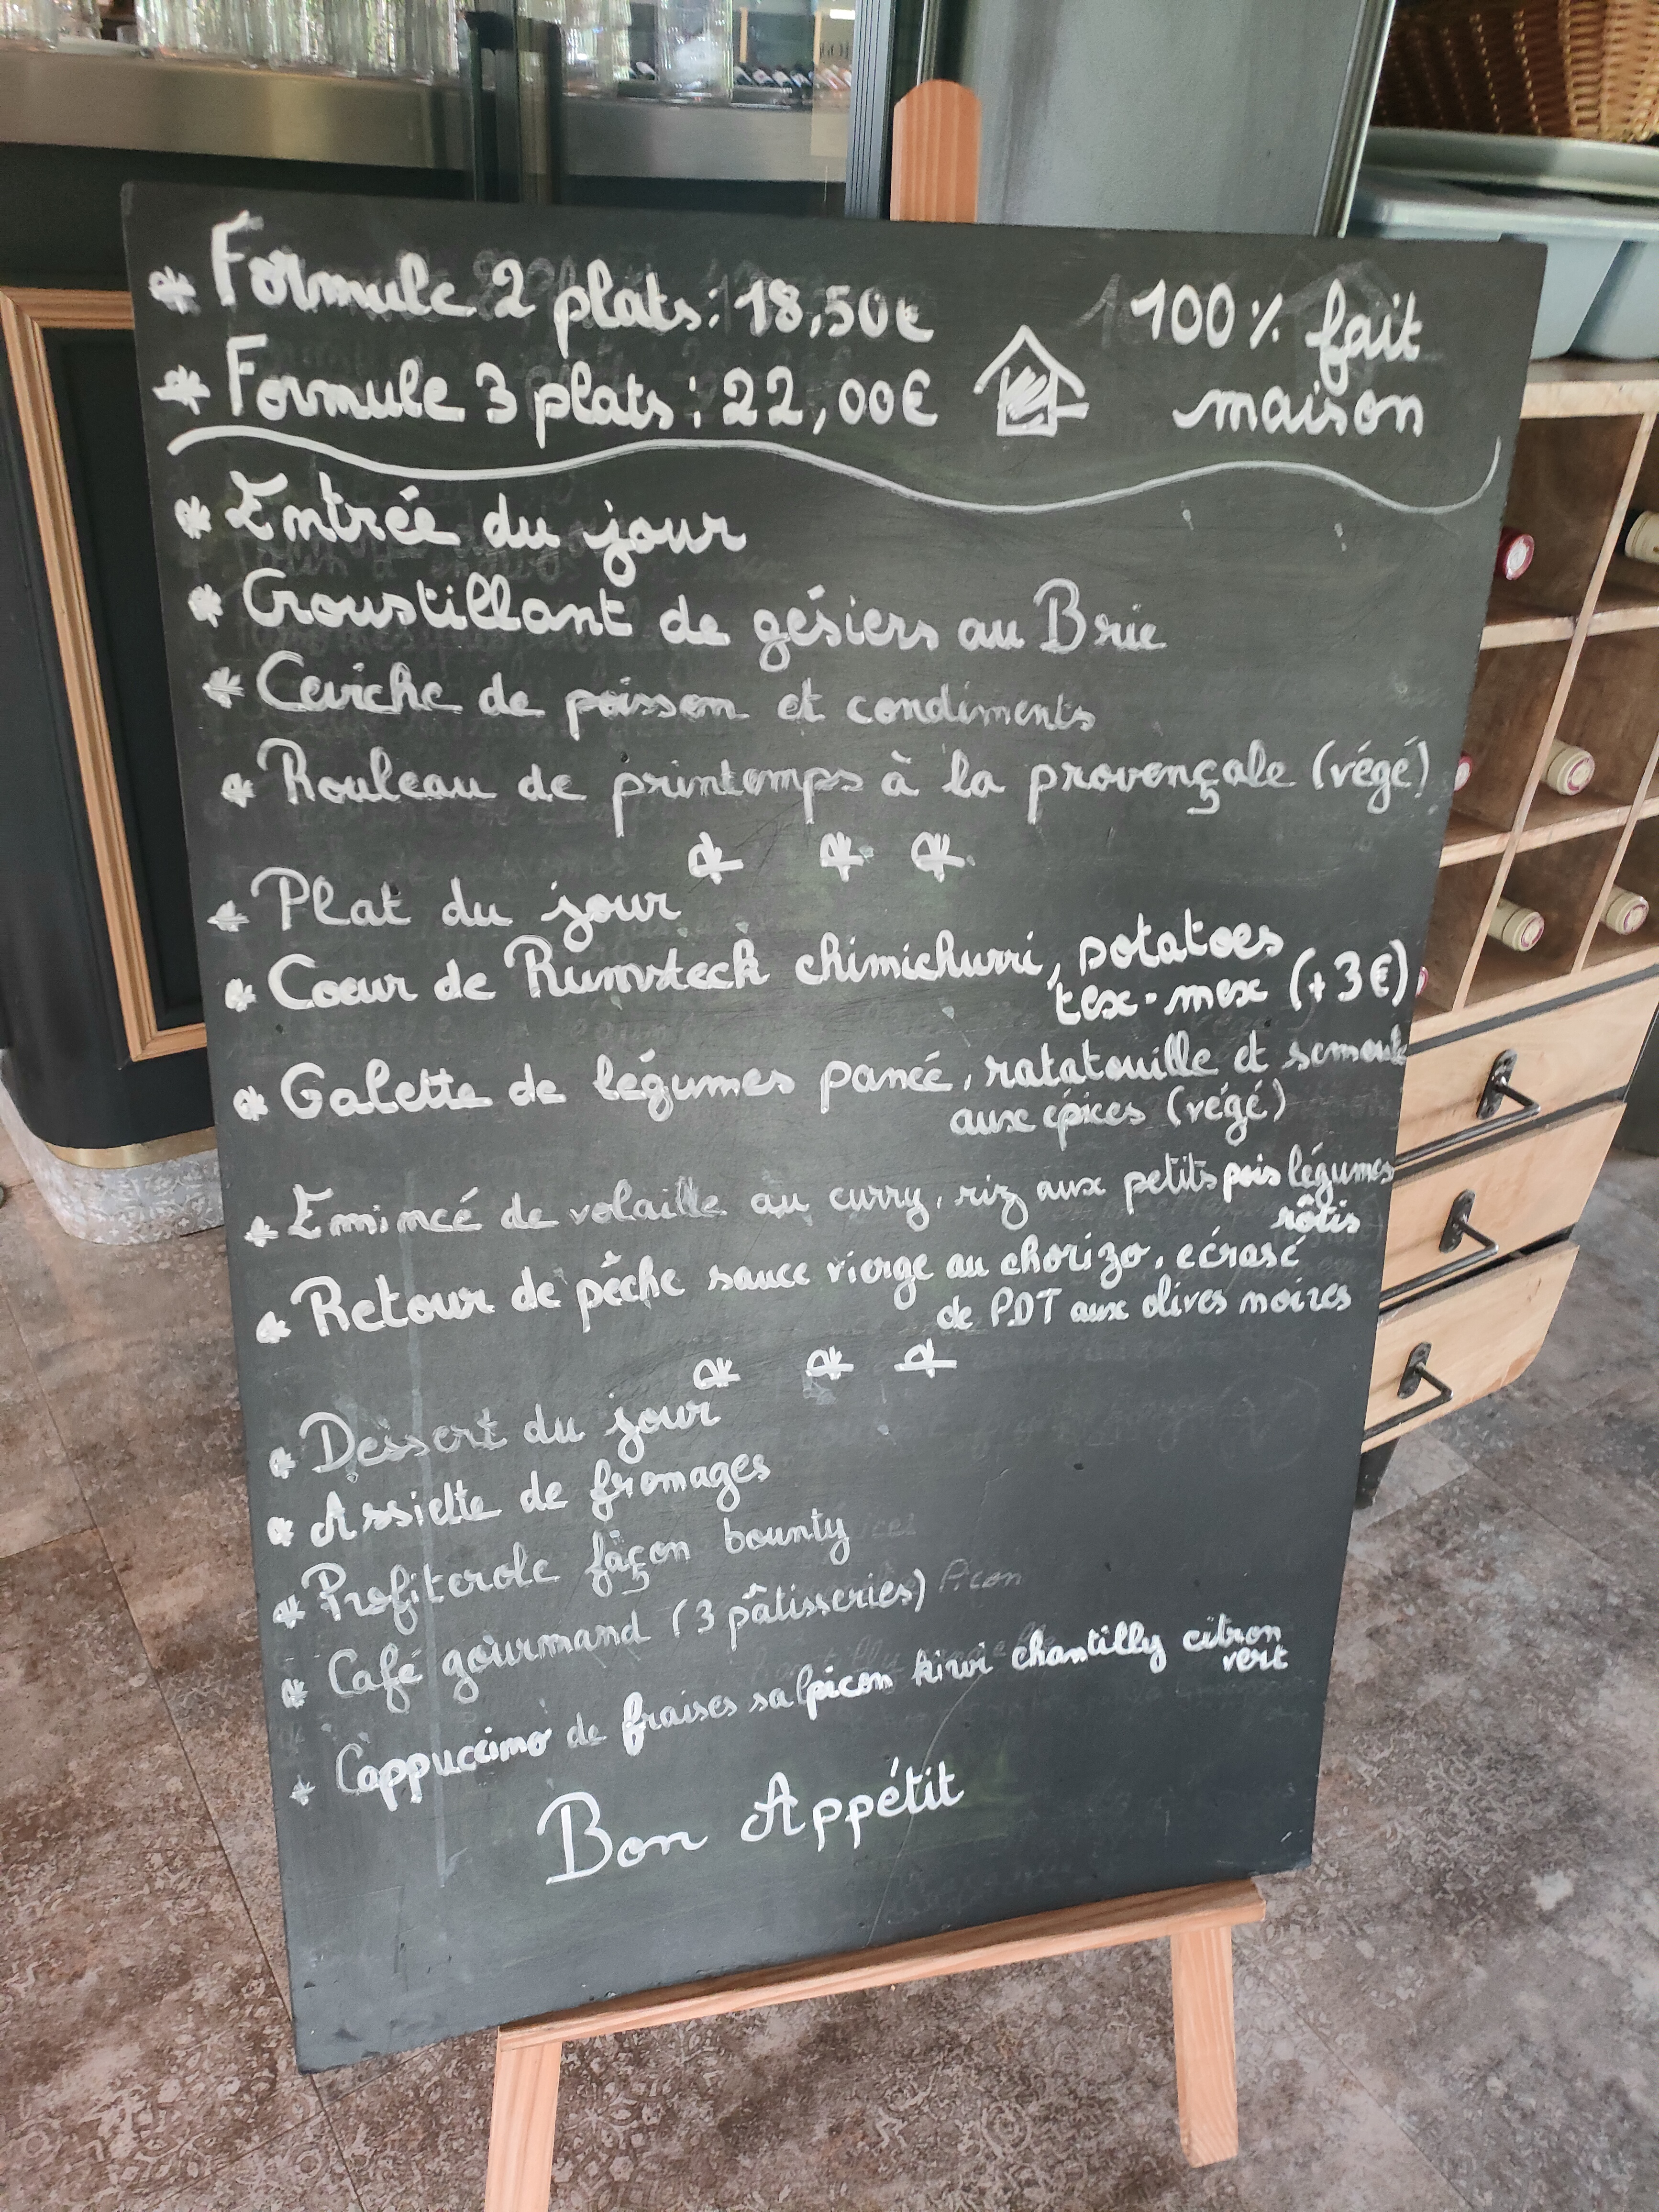 * Formule 2 plats : 18,50€
* Formule 3 plats : 22,00€
100% fait
maison
* Entrée du jour
* Croustillant de gésiers au Brie
* Ceviche de poisson et condiments
* Rouleau de printemps à la provençale (végé)
* * *
* Plat du jour
* Coeur de Rumsteck chimichurri, potatoes
tex-mex (+3€)
* Galette de légumes panée, ratatouille et semoule
aux épices (végé)
* Emincé de volaille au curry, riz aux petits pois légumes
rôtis
* Retour de pêche sauce vierge au chorizo, ecrasé
de PDT aux olives noires
* * *
* Dessert du jour
* Assiette de fromages
* Profiterole façon bounty
* Café gourmand (3 pâtisseries)
* Cappuccino de fraises salpicon kiwi chantilly citron
vert
Bon Appétit